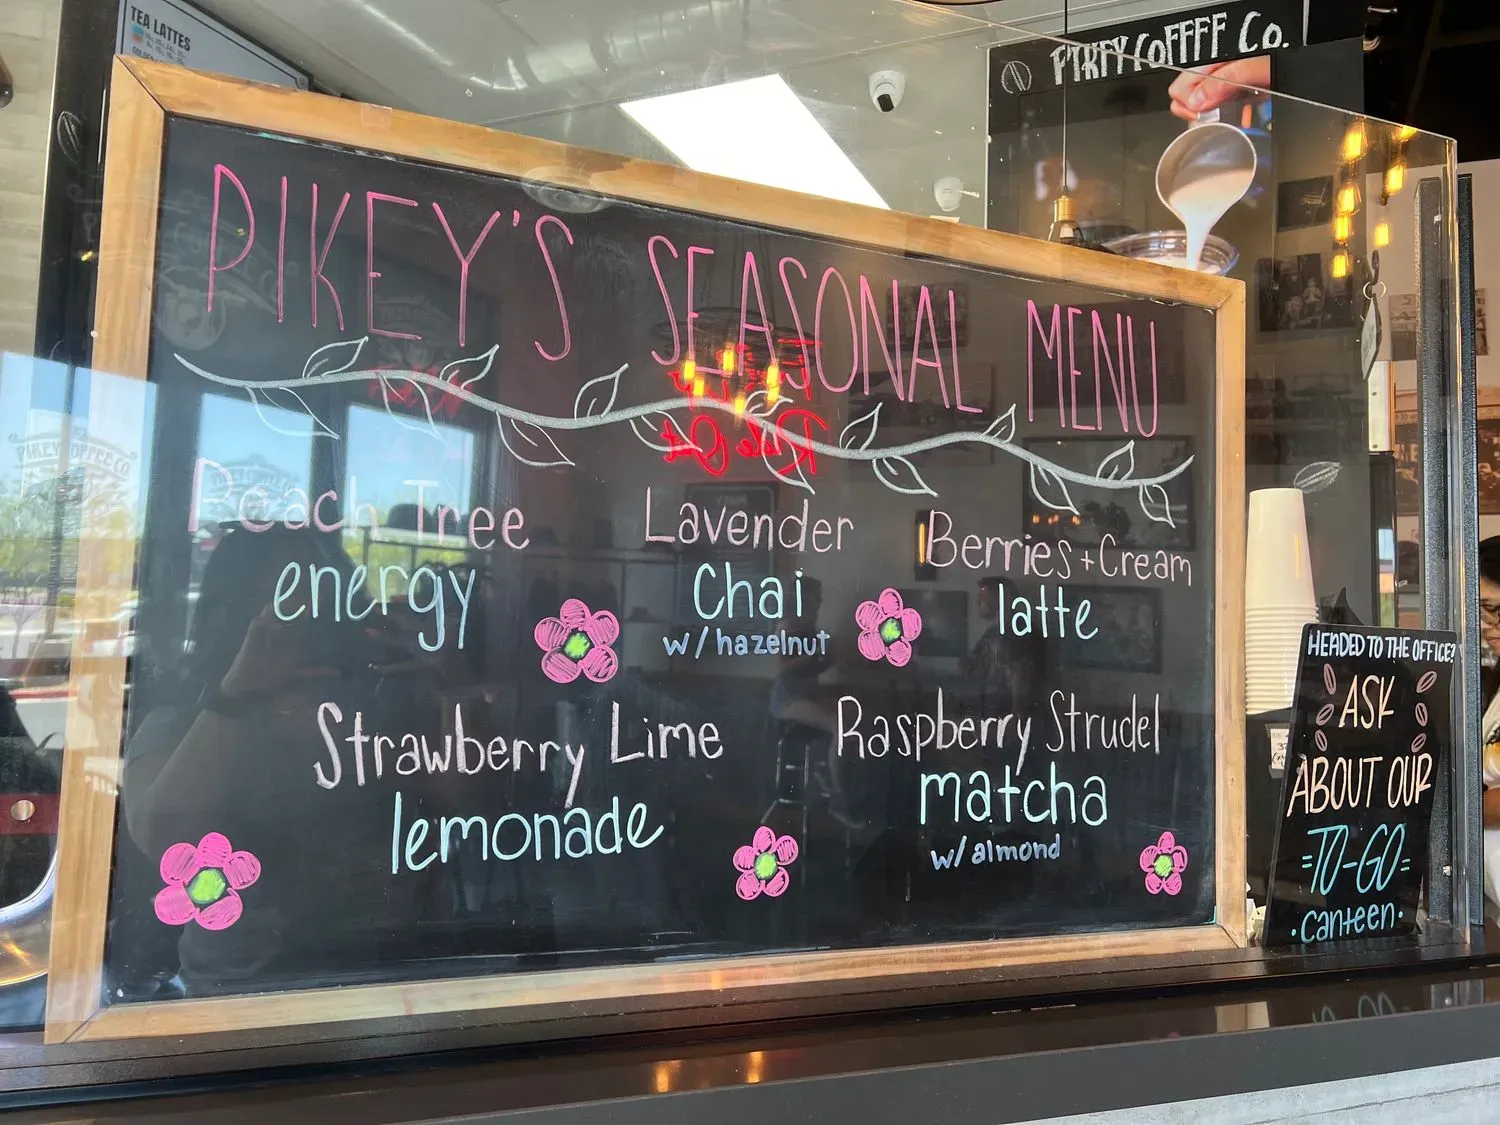 TEA LATTES
PIKEY COFFEE Co.
PIKEY'S SEASONAL MENU
Peach Tree
energy
Lavender
Chai
w/hazelnut
Berries + Cream
latte
Strawberry Lime
lemonade
Raspberry Strudel
matcha
w/almond
HEADED TO THE OFFICE?
ASK
ABOUT OUR
=TO-GO=
·canteen·
PIKEY COFFEE CO.